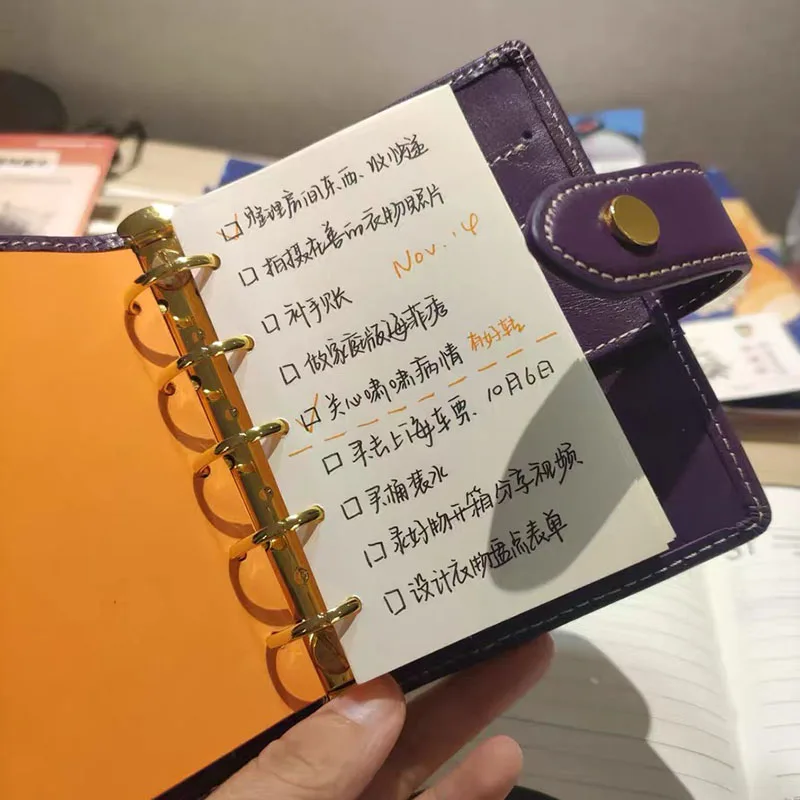 整理房间东西、收快递
拍摄在售的衣物照片
Nov. 4
补手账
做家庭版海菲秀
关心啸啸病情 有好转
买去上海车票、10月6日
买桶装水
录好物开箱分享视频
设计衣物盘点表单